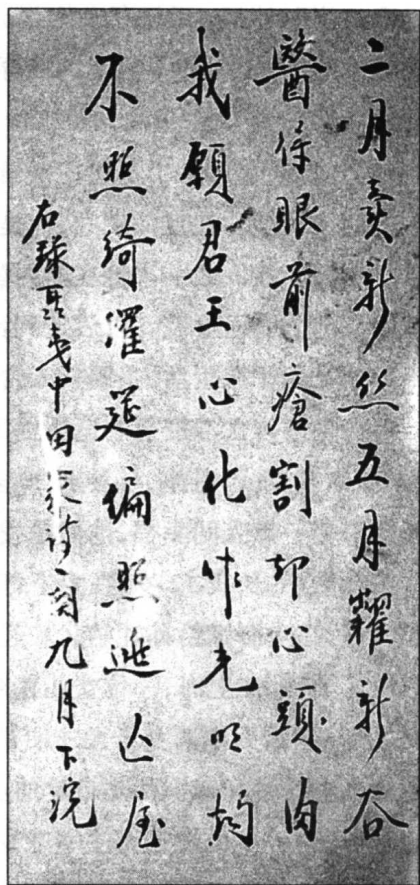 二月卖新丝五月糶新谷
醫得眼前瘡割却心頭肉
我願君王心化作光明
不照綺羅筵偏照逃亡屋
右録聶夷中田家詩一九月下浣